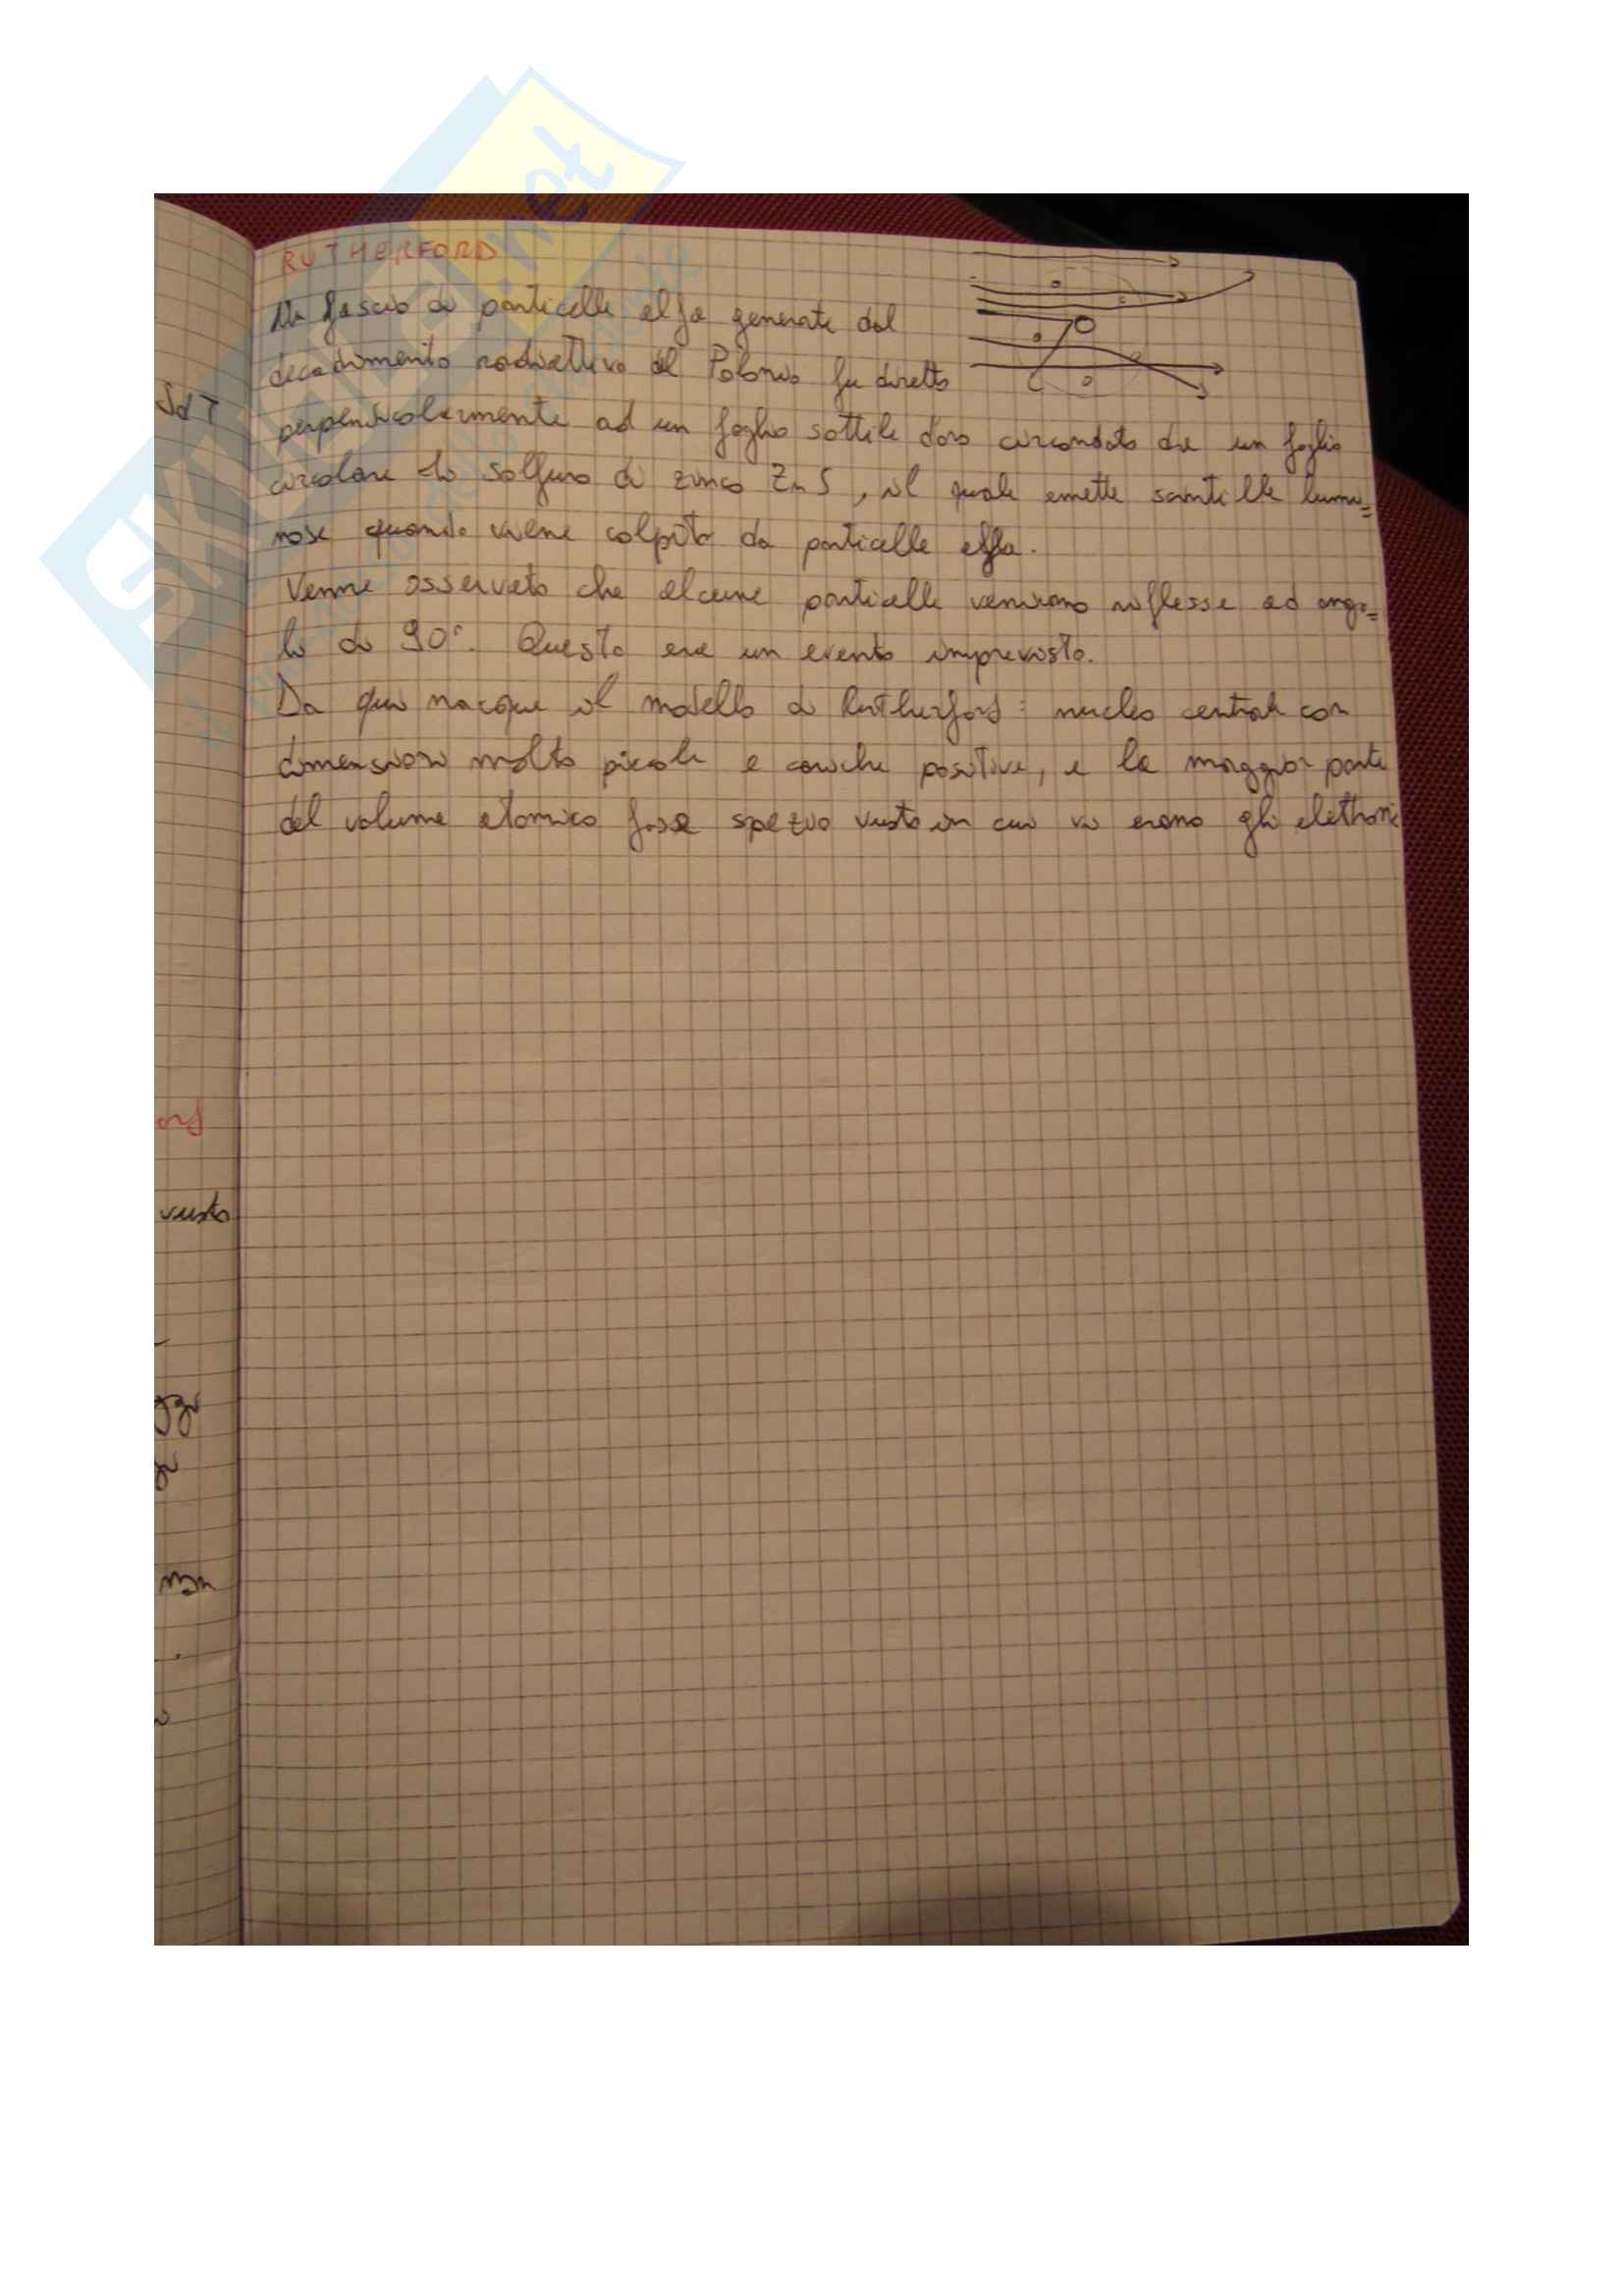 SKUOLA.net
RUTHERFORD
Un fascio di particelle alfa generate dal
decadimento radioattivo del Polonio fu diretto
perpendicolarmente ad un foglio sottile d'oro circondato da un foglio
circolare di solfuro di zinco ZnS, il quale emette scintille lumi=
nose quando viene colpito da particelle alfa.
Venne osservato che alcune particelle venivano riflesse ad ango=
lo di 90°. Questo era un evento imprevisto.
Da qui nacque il modello di Rutherford: nucleo centrale con
dimensioni molto piccole e cariche positive, e la maggior parte
del volume atomico fosse spazio vuoto in cui vi erano gli elettroni
vuoto